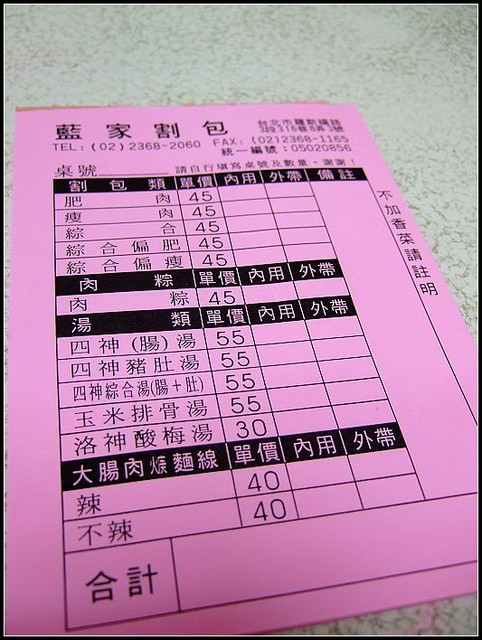 藍家割包
台北市羅斯福路
3段316巷8弄3號
TEL:(02)2368-2060 FAX:(02)2368-1165
統一編號:05020856
桌號 請自行填寫桌號及數量,謝謝!
割包類 單價 內用 外帶 備註
肥肉 45
瘦肉 45
綜合 45
綜合偏肥 45
綜合偏瘦 45
肉粽 單價 內用 外帶
肉粽 45
湯類 單價 內用 外帶
四神(腸)湯 55
四神豬肚湯 55
四神綜合湯(腸+肚) 55
玉米排骨湯 55
洛神酸梅湯 30
大腸肉焿麵線 單價 內用 外帶
辣 40
不辣 40
合計
不加香菜請註明